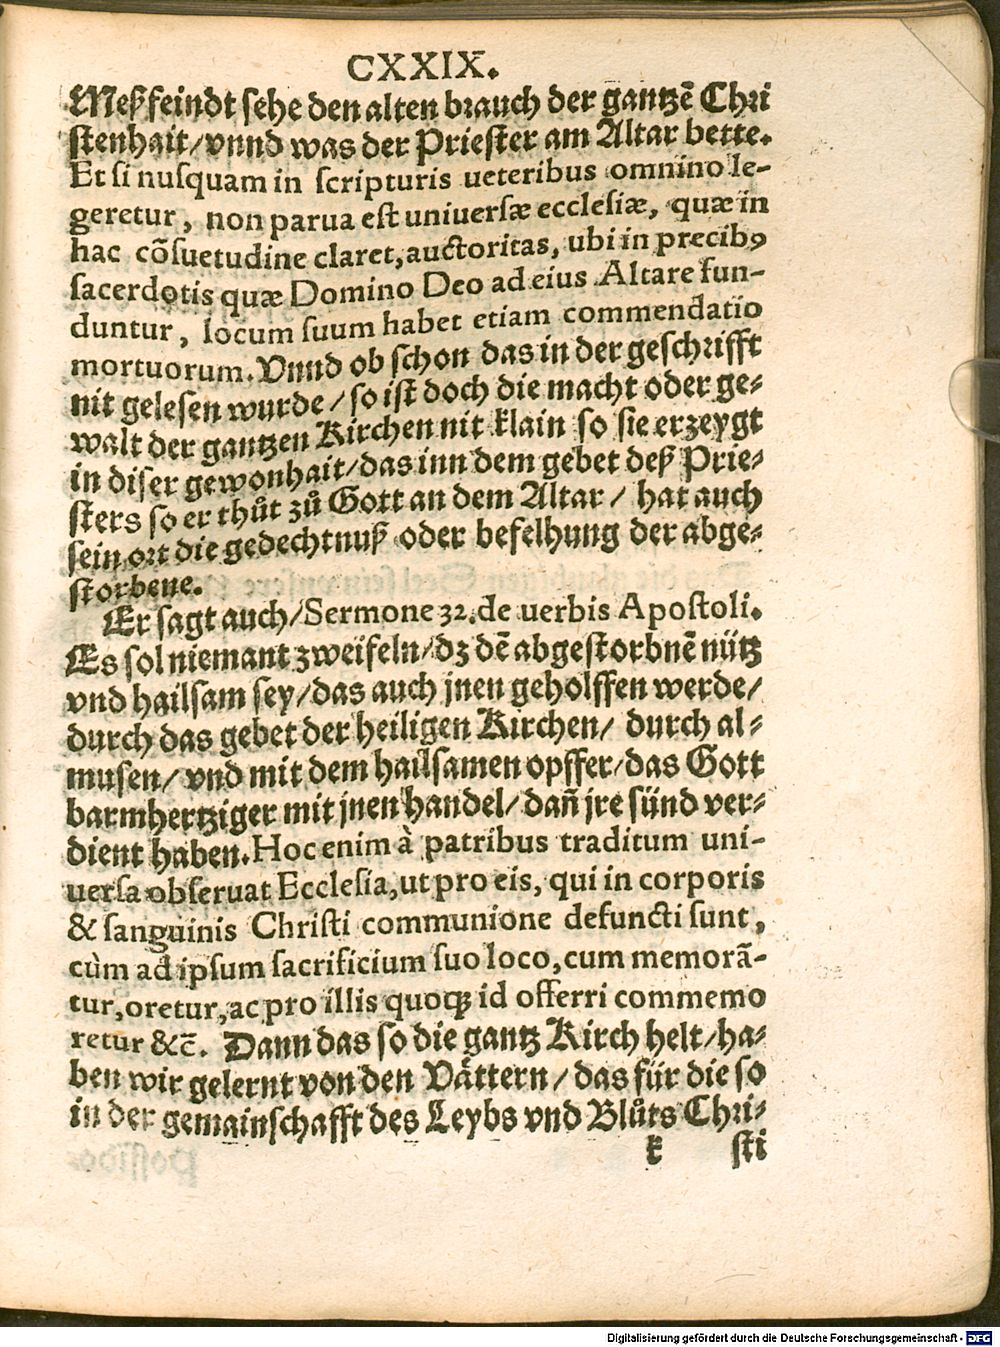 CXXIX.
Meßfeindt sehe den alten brauch der gantzẽ Chri
stenhait/vnnd was der Priester am Altar bette.
Et si nusquam in scripturis ueteribus omnino le-
geretur, non parua est uniuersæ ecclesiæ, quæ in
hac cõsuetudine claret, auctoritas, ubi in precibꝰ
sacerdotis quæ Domino Deo ad eius Altare fun-
duntur, locum suum habet etiam commendatio
mortuorum. Vnnd ob schon das in der geschrifft
nit gelesen wurde/so ist doch die macht oder ge-
walt der gantzen Kirchen nit klain so sie erzeygt
in diser gewonhait/das inn dem gebet deß Prie-
sters so er thůt zů Gott an dem Altar/ hat auch
sein ort die gedechtnuß oder befelhung der abge-
storbene.
Er sagt auch/Sermone 32. de uerbis Apostoli.
Es sol niemant zweifeln/dz dẽ abgestorbnẽ nütz
vnd hailsam sey/das auch jnen geholffen werde/
durch das gebet der heiligen Kirchen/ durch al-
musen/vnd mit dem hailsamen opffer/das Gott
barmhertziger mit jnen handel/dañ jre sünd ver-
dient haben. Hoc enim à patribus traditum uni-
uersa obseruat Ecclesia, ut pro eis, qui in corporis
& sanguinis Christi communione defuncti sunt,
cùm ad ipsum sacrificium suo loco, cum memorã-
tur, oretur, ac pro illis quoqꝫ id offerri commemo
retur &c̃. Dann das so die gantz Kirch helt/ha-
ben wir gelernt von den Vättern/das für die so
in der gemainschafft des Leybs vnd Blůts Chri-
k sti
Digitalisierung gefördert durch die Deutsche Forschungsgemeinschaft - DFG